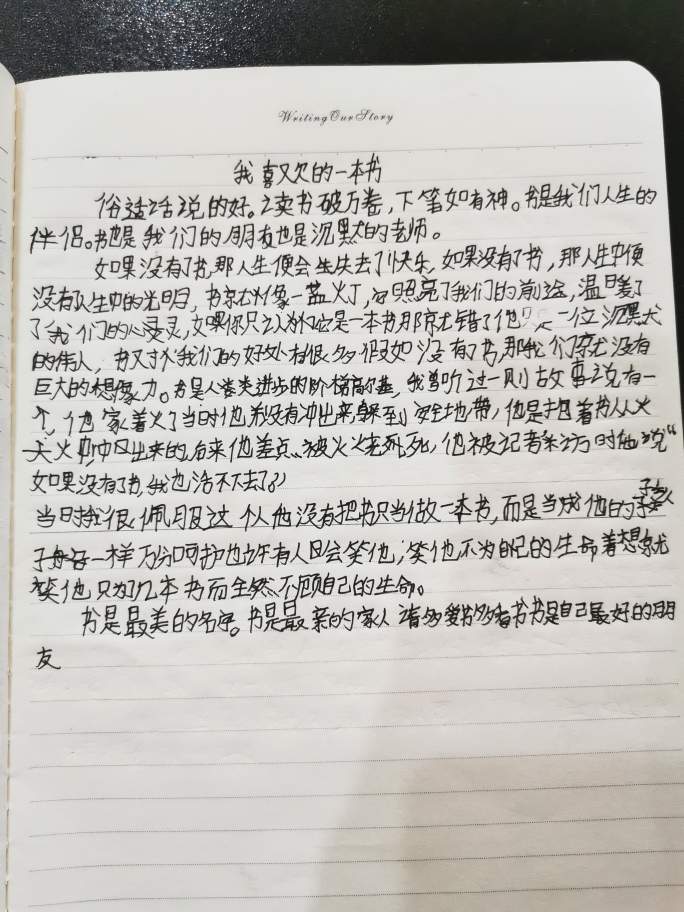 Writing Our Story
我喜欢的一本书
俗话说的好。读书破万卷，下笔如有神。书是我们人生的
伴侣。书也是我们的朋友也是沉默的老师。
如果没有了书，那人生便会失去了快乐，如果没有了书，那人生中便
没有人生中的光明，书就像一盏火丁，照亮了我们的前途，温暖了
了我们的心灵，如果你只认为它是一本书那就错了他只是一位沉默
的伟人，书对我们的好处有很多假如没有了书，那我们就没有
巨大的想像力。书是人类进步的阶梯高尔基，我曾听过一则故事说有一
个，他家着火了当时他并没有冲出来，躲到安全地带，他是抱着书从火
大火中冲出来的，后来他差点被火烧死，他被记者采访时他说“
如果没有了书，我也活不去了
当时我很佩服这个人他没有把书只当做一本书，而是当成他的
一样万分呵护也许有人会笑他；笑他不为自己的生命着想就
笑他只为几本书而全然不顾自己的生命。
书是最美的名字。书是最亲的家人请多爱书多看书书是自己最好的朋
友